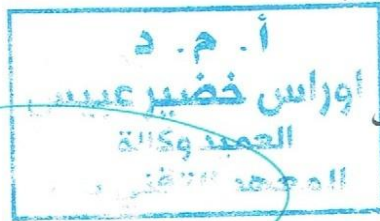 أ. م. د
اوراس خضير عبيس
العميد وكالة
المعهد التقني